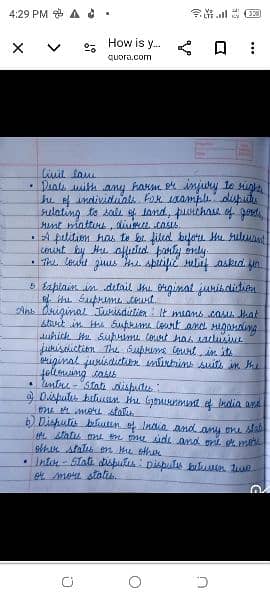 4:29 PM
How is y...
quora.com
Civil law
• Deals with any harm or injury to rights
he of individuals. For example: dispute
relating to sale of land, purchase of goods
rent matters, divorce cases.
• A petition has to be filed before the relevant
court by the affected party only.
• The court gives the specific relief asked for
5 Explain in detail the original jurisdiction
of the Supreme Court.
Ans Original Jurisdiction: It means cases that
start in the Supreme Court and regarding
which the Supreme Court has exclusive
jurisdiction. The Supreme Court, in its
original jurisdiction entertains suits in the
following cases
• Centre - State disputes:
a) Disputes between the Government of India and
one or more states
b) Disputes between of India and any one state
or states one on one side and one or more
other states on the other
• Inter - State disputes: Disputes between two
or more states.